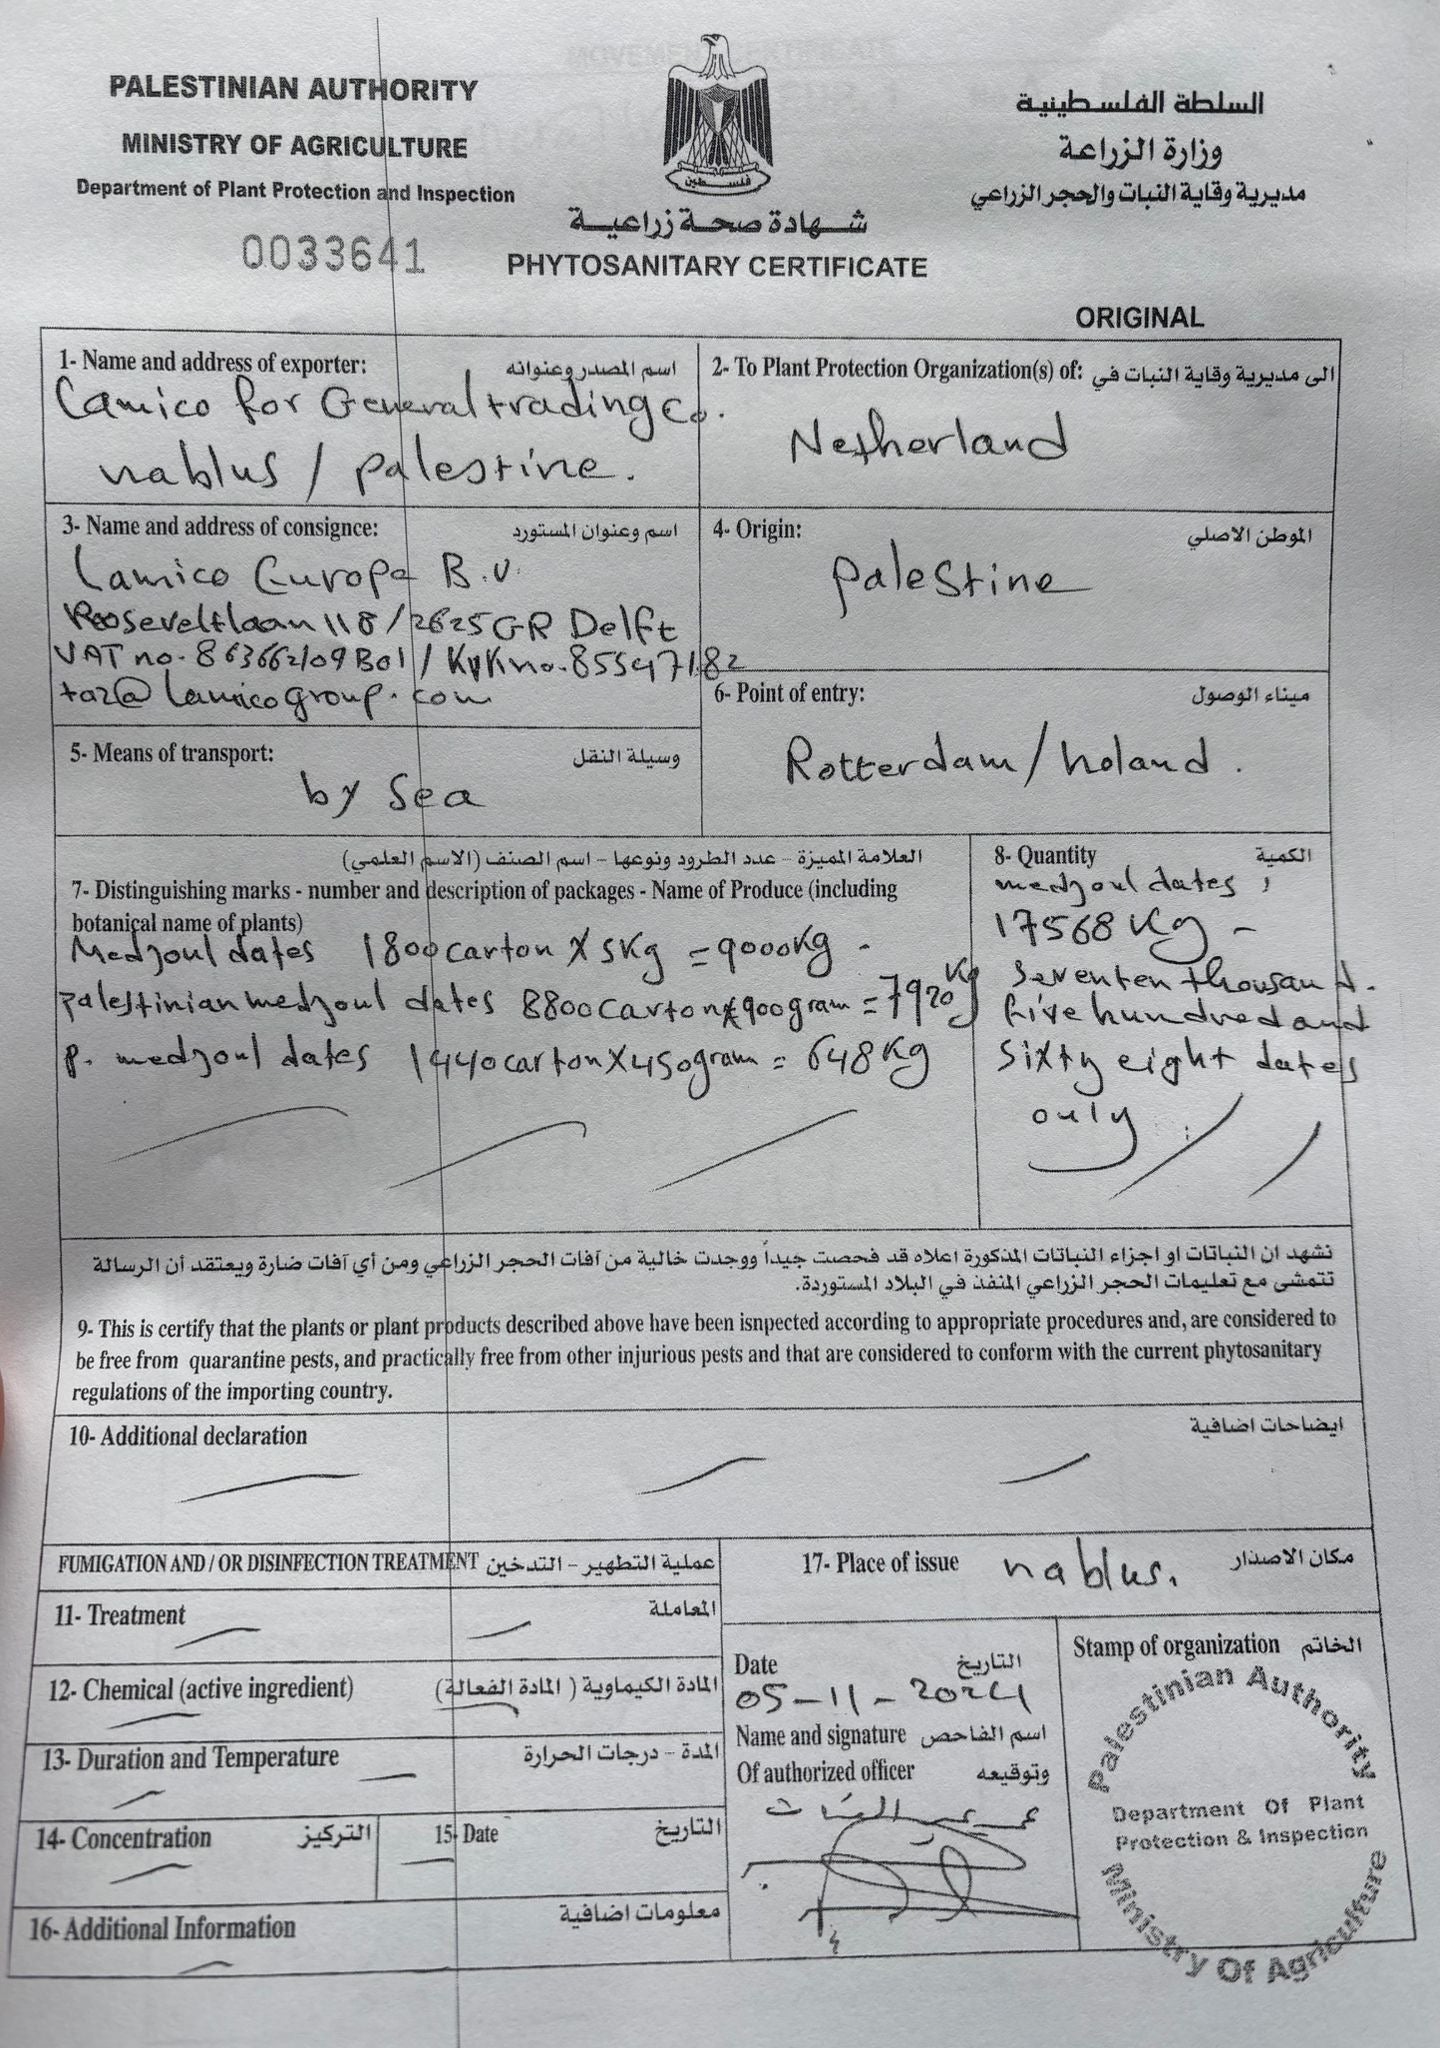 PALESTINIAN AUTHORITY
MINISTRY OF AGRICULTURE
Department of Plant Protection and Inspection
0033641
فلسطين
السلطة الفلسطينية
وزارة الزراعة
مديرية وقاية النبات والحجر الزراعي
شهادة صحة زراعية
PHYTOSANITARY CERTIFICATE
ORIGINAL
1- Name and address of exporter: اسم المصدر وعنوانه
Lamico for General trading Co.
nablus / palestine.
2- To Plant Protection Organization(s) of: الى مديرية وقاية النبات في
Netherland
3- Name and address of consignce: اسم وعنوان المستورد
Lamico Europe B.V.
Rooseveltlaan 118 / 2625GR Delft
VAT no. 863662109B01 / KvK no. 85547182
taz@lamicogroup.com
4- Origin: الموطن الاصلي
palestine
5- Means of transport: وسيلة النقل
by Sea
6- Point of entry: ميناء الوصول
Rotterdam / holand.
العلامة المميزة - عدد الطرود ونوعها - اسم الصنف (الاسم العلمي)
7- Distinguishing marks - number and description of packages - Name of Produce (including
botanical name of plants)
Medjoul dates 1800 carton X 5Kg = 9000Kg -
palestinian medjoul dates 8800 carton X 900gram = 7920 Kg
p. medjoul dates 1440 carton X 450gram = 648 Kg
8- Quantity الكمية
medjoul dates,
17568 Kg -
Seventen thousand.
five hundred and
sixty eight dates
only
نشهد ان النباتات او اجزاء النباتات المذكورة اعلاه قد فحصت جيداً ووجدت خالية من آفات الحجر الزراعي ومن أي آفات ضارة ويعتقد أن الرسالة
تتمشى مع تعليمات الحجر الزراعي المنفذ في البلاد المستوردة.
9- This is certify that the plants or plant products described above have been isnpected according to appropriate procedures and, are considered to
be free from quarantine pests, and practically free from other injurious pests and that are considered to conform with the current phytosanitary
regulations of the importing country.
10- Additional declaration ايضاحات اضافية
FUMIGATION AND / OR DISINFECTION TREATMENT عملية التطهير - التدخين
11- Treatment المعاملة
12- Chemical (active ingredient) المادة الكيماوية ( المادة الفعالة)
13- Duration and Temperature المدة - درجات الحرارة
14- Concentration التركيز
15- Date التاريخ
16- Additional Information معلومات اضافية
17- Place of issue nablus. مكان الاصدار
Date التاريخ
05-11-2024
Name and signature اسم الفاحص
Of authorized officer وتوقيعه
Stamp of organization الخاتم
Palestinian Authority
Department Of Plant
Protection & Inspection
Ministry Of Agriculture